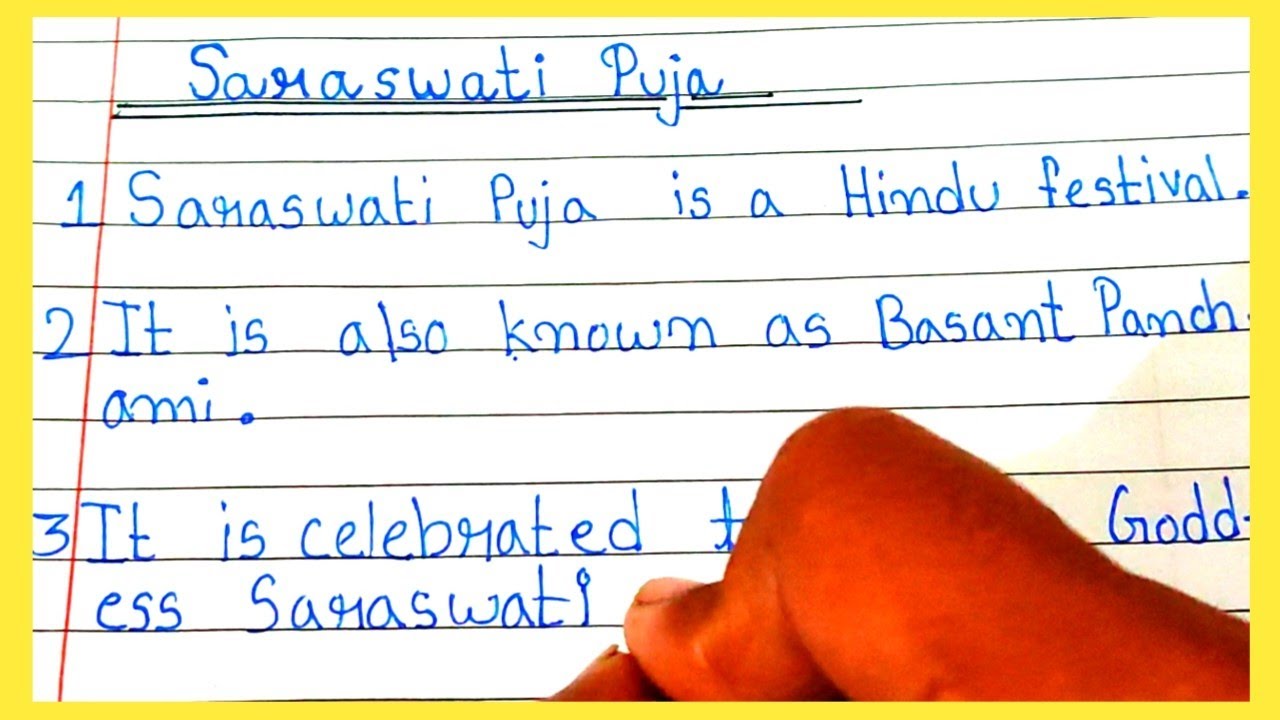 Saraswati Puja
1 Saraswati Puja is a Hindu festival.
2 It is also known as Basant Panch-
ami.
3 It is celebrated Godd-
ess Saraswati